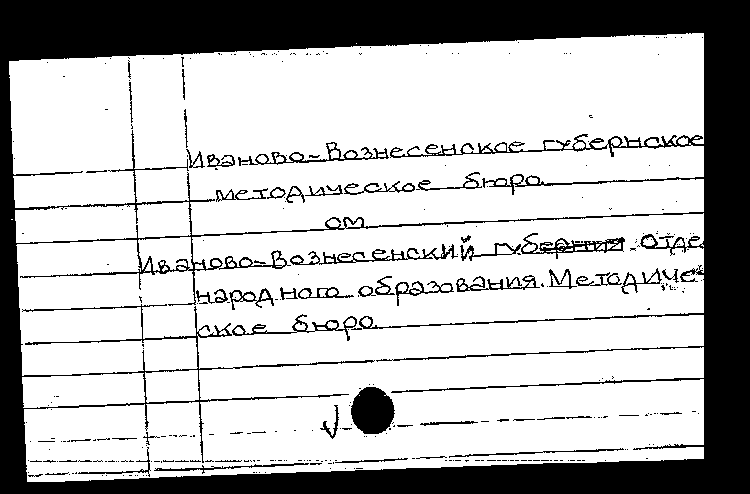 Иваново-Вознесенское губернское
методическое бюро
см
Иваново-Вознесенский губ. отде
народного образования. Методиче-
ское бюро